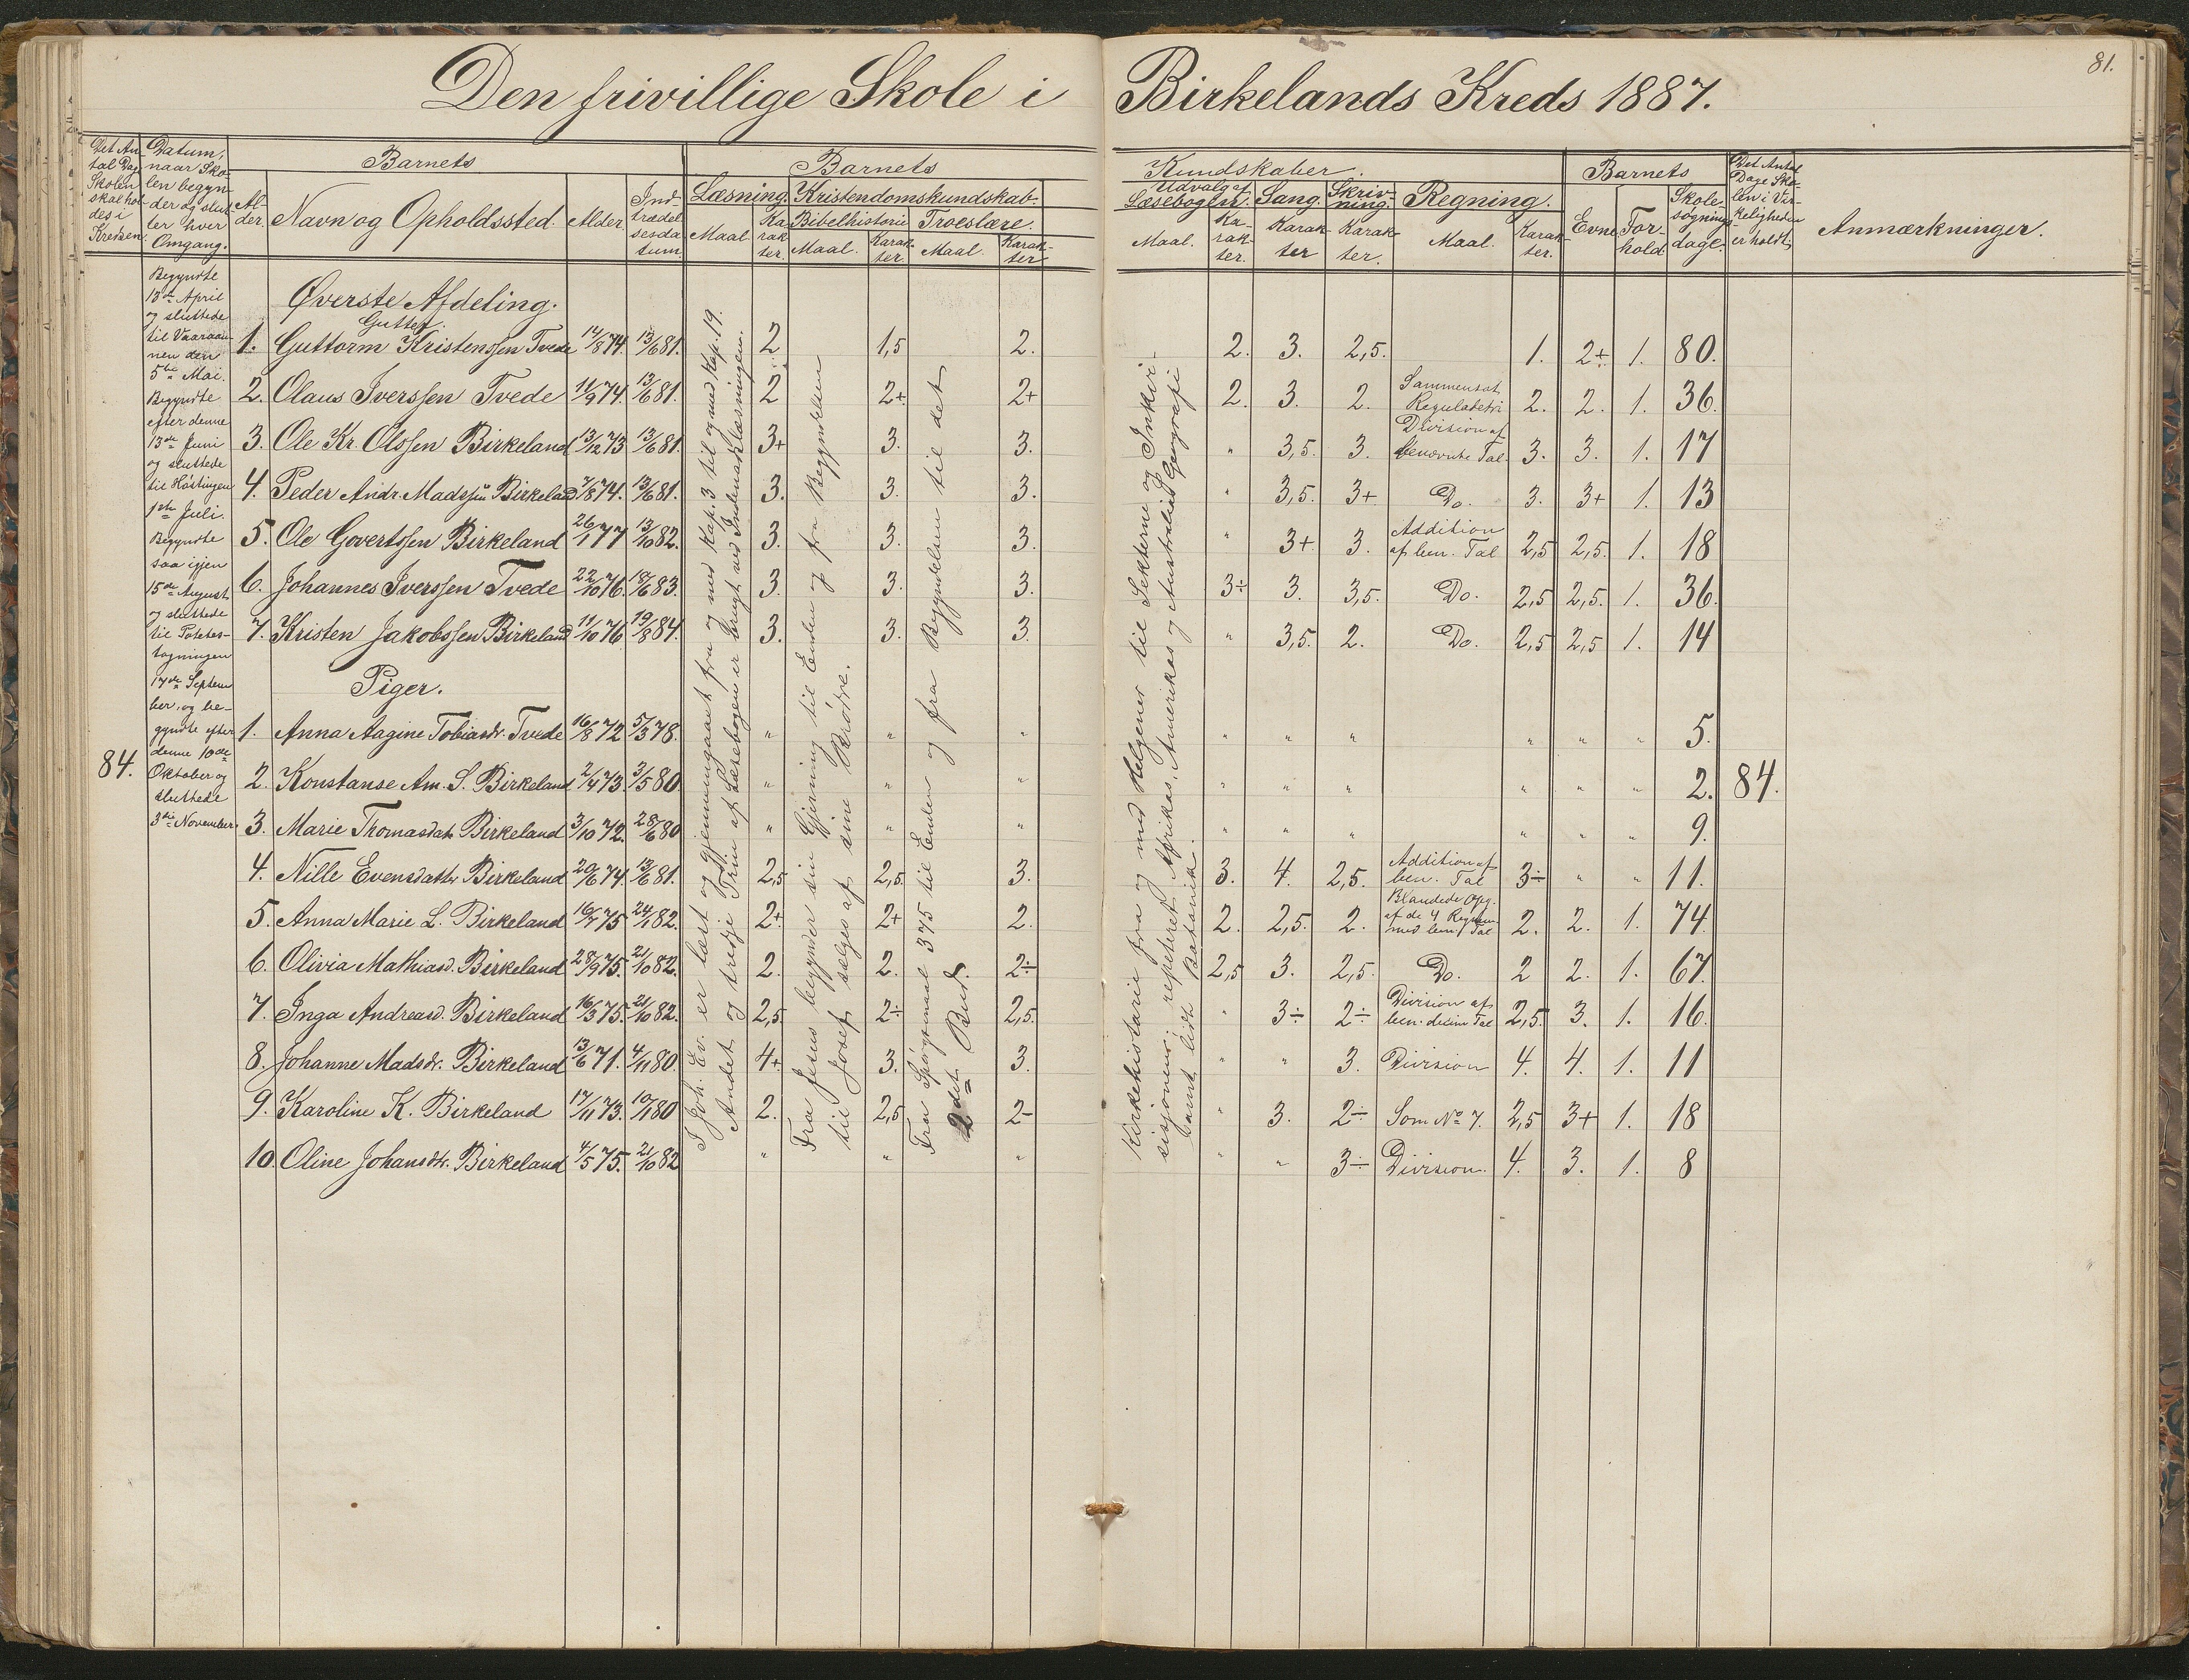 Den frivillige Skole i Birkelands Kreds 1887.
81.
Det An-
tal Dage
Skolen
skal hol-
des i
Kredsen.
Datum,
naar Sko-
len begyn-
der og slut-
ter hver
Omgang.
Barnets
Al-
der.
Navn og Opholdssted.
Alder.
Ind-
trædel-
sesda-
tum.
Barnets
Læsning. Kristendomskundskab.
Maal.
Ka-
rak-
ter.
Bibelhistorie Troeslære.
Maal.
Karak-
ter.
Maal.
Karak-
ter
Kundskaber.
Udvalg af
Læsebogen.
Maal.
Ka-
rak-
ter.
Sang.
Karak-
ter
Skriv-
ning.
Karak-
ter.
Regning.
Maal.
Karak-
ter.
Barnets
Evne
For-
hold
Skole-
søgnings-
dage.
Det Antal
Dage Sko-
len i Vir-
keligheden
er holdt.
Anmærkninger.
84.
Begyndte
13de April
og sluttede
til Vaaraan-
nen den
5te Mai.
Begyndte
efter denne
13de Juni
og sluttede
til Høstingen
1ste Juli.
Begyndte
saa igjen
15de August
og sluttede
til Potetes-
tagningen
17de Septem
ber, og be-
gyndte efter
denne 10de
Oktober og
sluttede
3die November.
Øverste Afdeling.
Gutter.
1. Guttorm Kristenssen Tvede 14/8 74. 13/6 81. 2 1,5 2. 2. 3. 2,5. 1. 2+ 1. 80.
2. Olaus Iverssen Tvede 11/9 74. 13/6 81. 2 2+ 2+ 2. 3. 2. Sammensat Reguladetri 2. 2. 1. 36.
3. Ole Kr. Olssen Birkeland 13/12 73 13/6 81. 3+ 3. 3. " 3,5. 3. Division af benævnte Tal. 3. 3. 1. 17
4. Peder Andr. Madssøn Birkeland 7/8 74. 13/6 81. 3. 3. 3. " 3,5. 3+ Do. 3. 3+ 1. 13
5. Ole Govertssen Birkeland 26/1 77 13/10 82. 3. 3. 3. " 3+ 3. Addition af ben. Tal 2,5 2,5. 1. 18
6. Johannes Iverssen Tvede 22/10 76. 18/6 83. 3. 3. 3. 3÷ 3. 3,5. Do. 2,5 2,5. 1. 36.
7. Kristen Jakobssen Birkeland 11/10 76 19/8 84. 3. 3. 3. " 3,5. 2. Do. 2,5 2,5 1. 14
Piger.
1. Anna Aagine Tobiasdr. Tvede 16/8 72 5/3 78. " " " " " " " " " 5.
2. Konstanse Am. S. Birkeland 2/4 73. 3/5 80. " " " " " " " " " 2. 84.
3. Marie Thomasdatr. Birkeland 3/10 72. 28/6 80 " " " " " " " " " 9.
4. Nille Evensdatter Birkeland 20/6 74. 13/6 81. 2,5 2,5. 3. 3. 4. 2,5. Addition af ben. Tal 3÷ " " 11.
5. Anna Marie L. Birkeland 16/7 75 24/1 82. 2+ 2+ 2. 2. 2,5. 2. Blandede Opg. af de 4 Regn. med ben. Tal 2. 2. 1. 74.
6. Olivia Mathiasd. Birkeland 28/9 75. 21/10 82. 2. 2. 2÷ 2,5 3. 2,5. Do. 2 2. 1. 67.
7. Inga Andreasd. Birkeland 16/3 75. 21/10 82. 2,5. 2÷ 2,5. " 3÷ 2÷ Division af ben. decim Tal 2,5. 3. 1. 16.
8. Johanne Madsdr. Birkeland 13/6 71. 4/11 80. 4+ 3. 3. " " 3. Division 4. 4. 1. 11
9. Karoline K. Birkeland 17/11 73. 10/1 80 2. 2,5 2- " 3. 2÷ Som No 7. 2,5 3+ 1. 18
10. Oline Johansdtr. Birkeland 4/5 75. 21/10 82 " " " " " 3÷ Division. 4. 3. 1. 8
I Joh. Ev. er læst og gjennemgaaet fra og med Kap. 3 til og med Kap. 19.
Andet og tredje Trin af Læsebogen er brugt ved Indenadslæsningen.
Fra Jesus begynder sin Gjerning til Enden og fra Begyndelsen
til Josef sælges af sine Brødre.
Fra Spørgsmaal 375 til Enden og fra Begyndelsen til det
2det Bud.
Kirkehistorie fra og med Helgener til Sekterne og Inkvi-
sisjonen; repeteret Afrikas, Amerikas og Australias Geografi
samt lidt Botanik.